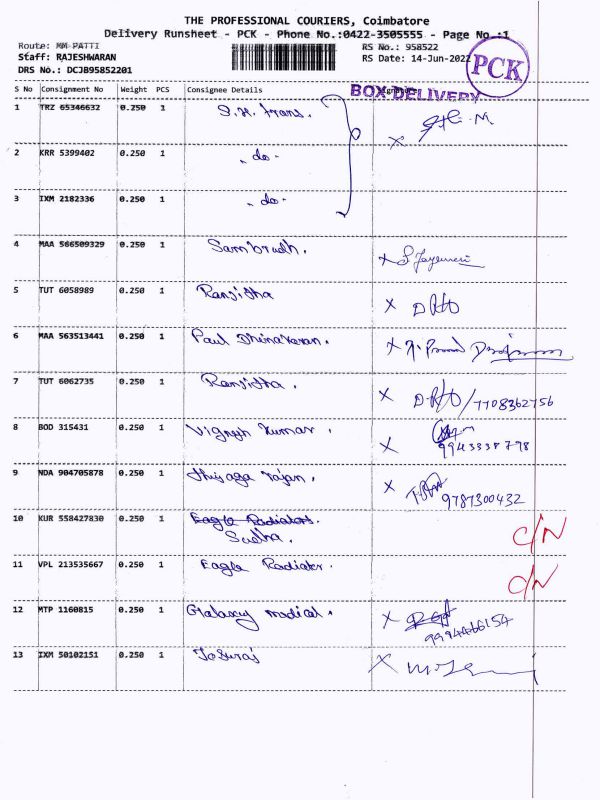 THE PROFESSIONAL COURIERS, Coimbatore
Delivery Runsheet - PCK - Phone No.:0422-3505555 - Page No.:1
Route: MM PATTI RS No.: 958522
Staff: RAJESHWARAN RS Date: 14-Jun-2022
DRS No.: DCJB95852201
PCK
BOX DELIVERY
S No Consignment No Weight PCS Consignee Details Signature
1 TRZ 65346632 0.250 1 S.K. Trans.
2 KRR 5399402 0.250 1 - do -
3 IXM 2182336 0.250 1 - do -
4 MAA 566509329 0.250 1 Sambrudh. X
5 TUT 6058989 0.250 1 Ransitha X
6 MAA 563513441 0.250 1 Paul Dhinakaran. X
7 TUT 6062735 0.250 1 Ransitha. X 7708362756
8 BOD 315431 0.250 1 Vignesh Kumar. X 9943338778
9 NDA 904705878 0.250 1 Thiyaga rajan. X 9787300432
10 KUR 558427830 0.250 1 Eagle Radiators. C/N
Sudha.
11 VPL 213535667 0.250 1 Eagle Radiator. C/N
12 MTP 1160815 0.250 1 Galaxy medical. X 9994466154
13 IXM 50102151 0.250 1 X